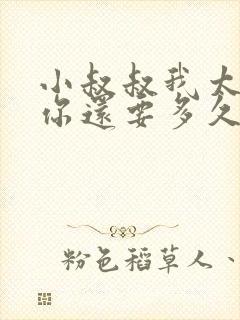 小叔叔我太
你還要多久
粉色稻草人、